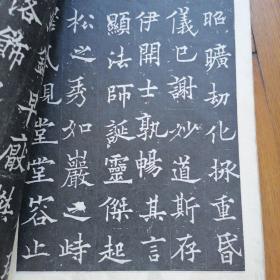 昭曠劫化拯重昏
儀已謝妙道斯存
伊開士孰暢其言
顯法師誕靈傑起
松之秀如巖之峙
見堂堂容止
落飾早厭樊